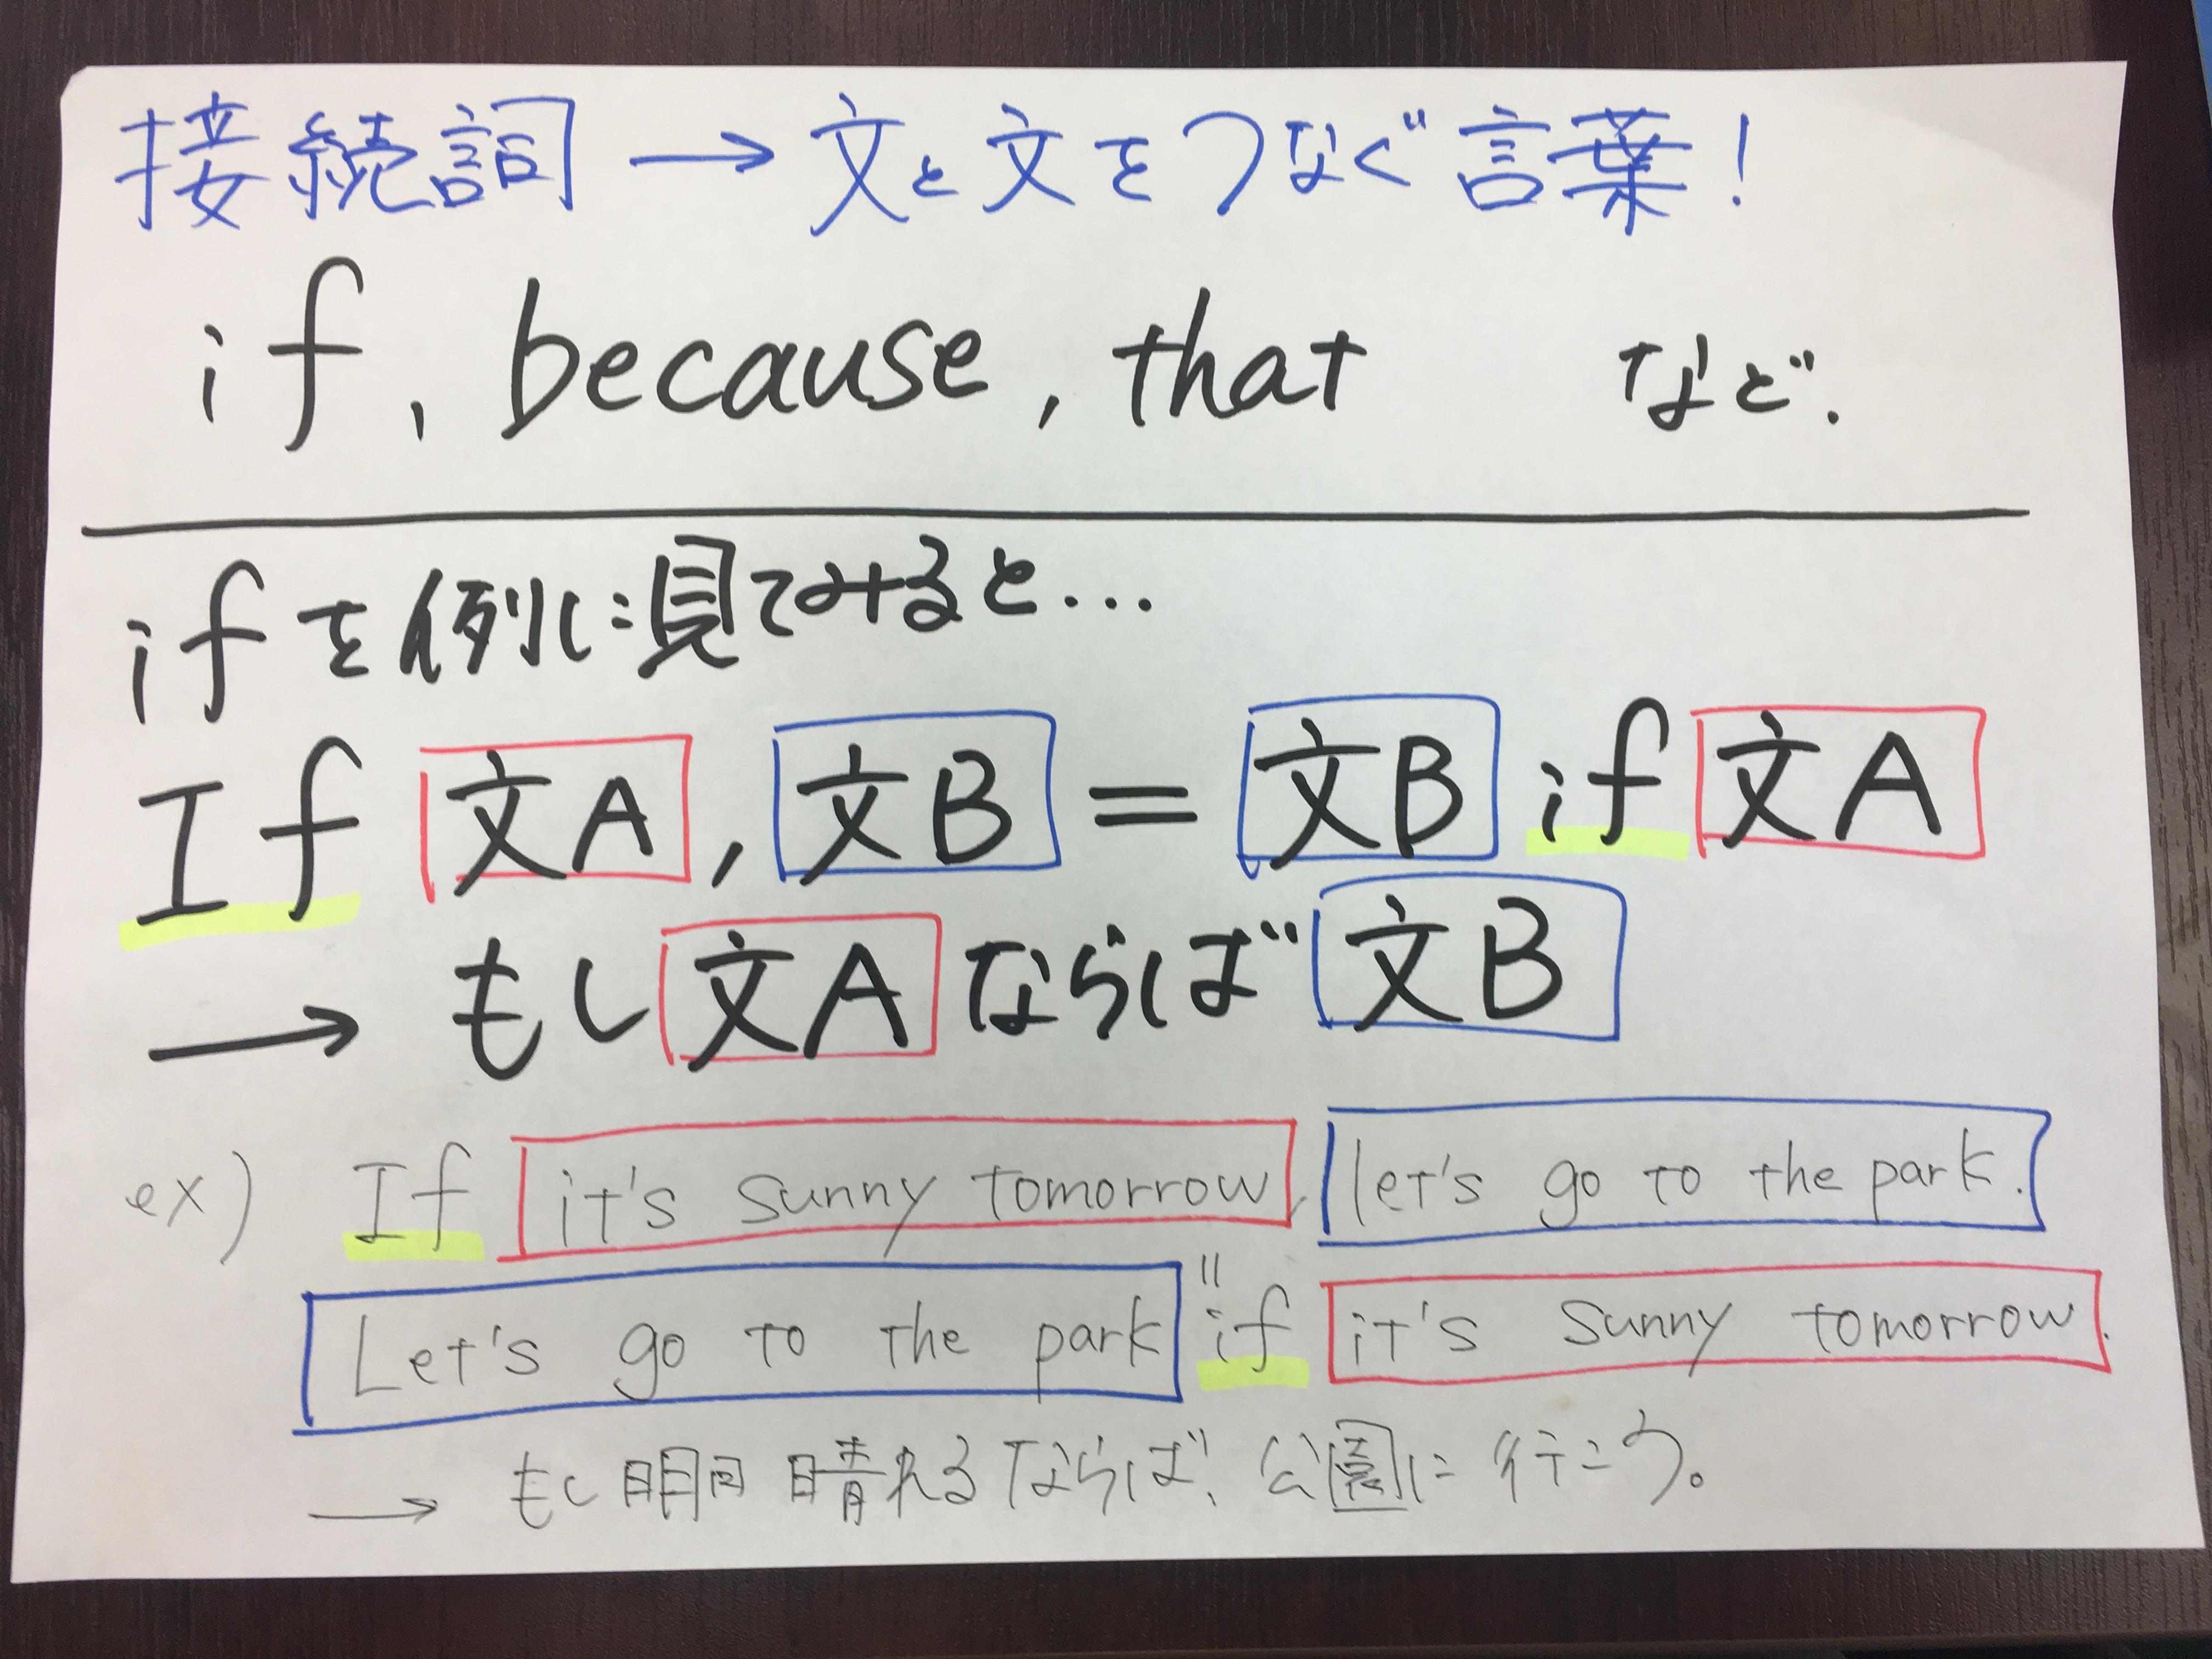 接続詞 → 文と文をつなぐ言葉!
if, because, that など.
ifを例に見てみると...
If 文A, 文B = 文B if 文A
→ もし文Aならば文B
ex) If it's sunny tomorrow, let's go to the park.
=
Let's go to the park if it's sunny tomorrow.
→ もし明日晴れるならば、公園に行こう。